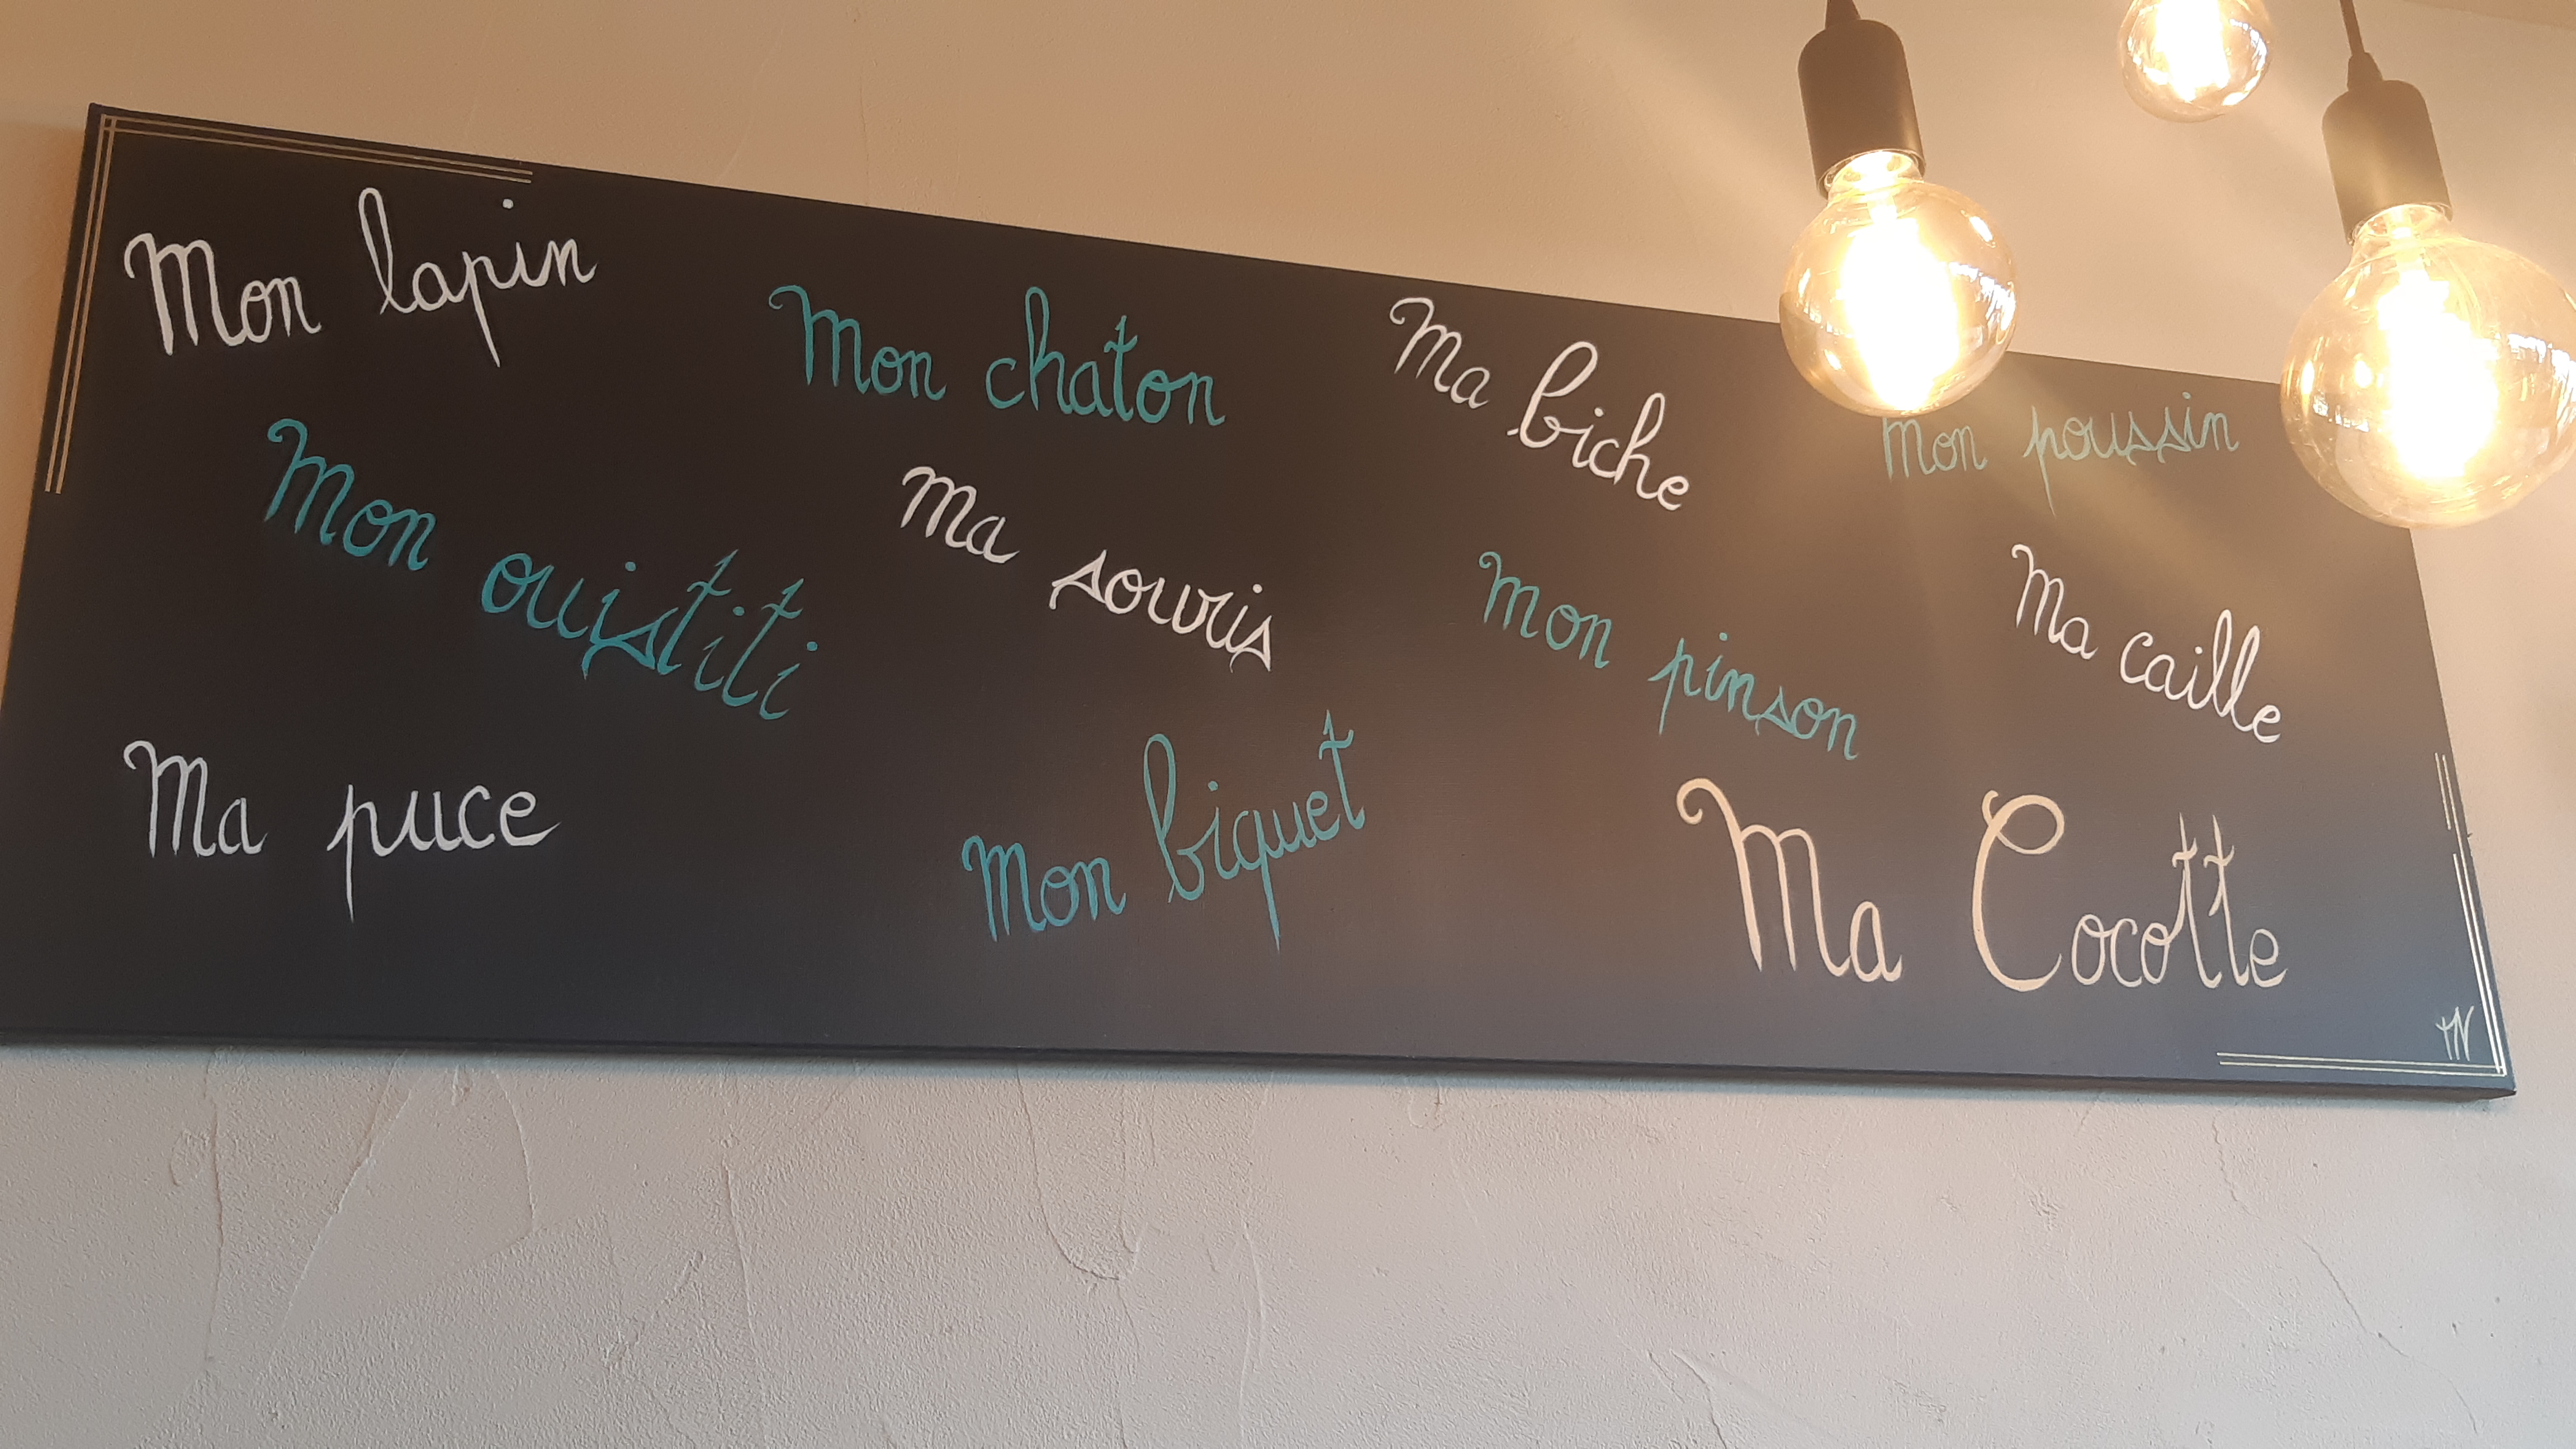 Mon lapin
Mon chaton
Ma biche
Mon poussin
Mon ouistiti
Ma souris
Mon pinson
Ma caille
Ma puce
Mon biquet
Ma Cocotte